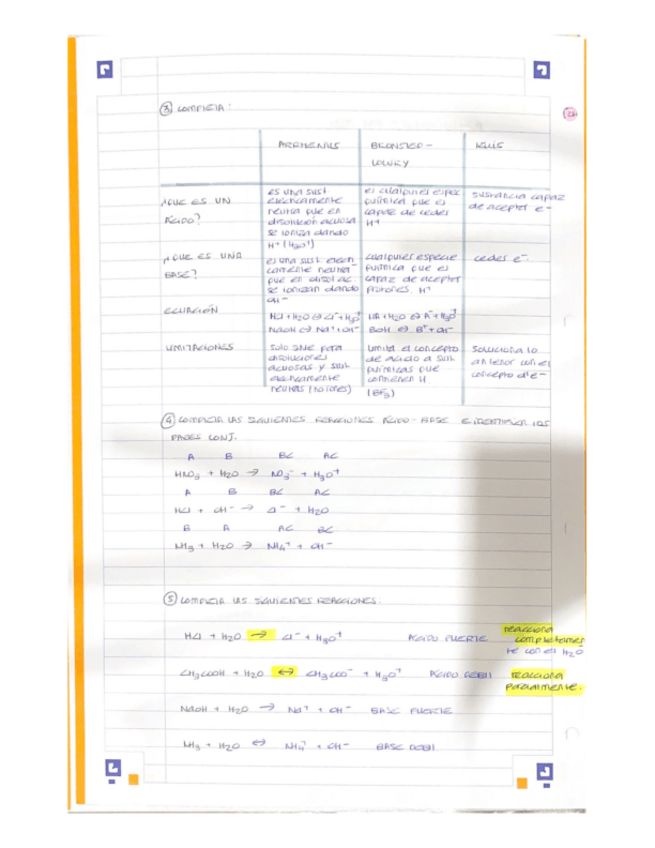 ③ COMPLETA:
ARRHENIUS
BRONSTED-
LOWRY
LEWIS
¿QUE ES UN
ÁCIDO?
es una sust.
electricamente
neutra que en
disolución acuosa
se ioniza dando
H+ (H3O+)
es cualquier espec.
química que es
capaz de ceder
H+
sustancia capaz
de aceptar e-
¿QUE ES UNA
BASE?
es una sust. electri-
camente neutra
que en disol. ac.
se ionizan dando
OH-
cualquier especie
química que es
capaz de aceptar
protones. H+
cedes e-.
ECUACIÓN
HCl + H2O ⇔ Cl- + H3O+
NaOH ⇔ Na+ + OH-
HA + H2O ⇔ A- + H3O+
BOH ⇔ B+ + OH-
LIMITACIONES
Solo sirve para
disoluciones
acuosas y sust.
electricamente
neutras (no iones)
Limita el concepto
de ácido a sust.
químicas que
contienen H
(BF3)
Soluciona lo
anterior con el
concepto d'e-
④ COMPLETA LAS SIGUIENTES REACCIONES ÁCIDO-BASE E IDENTIFICA LOS
PARES CONJ.
A B BC AC
HNO3 + H2O → NO3- + H3O+
A B BC AC
HCl + OH- → Cl- + H2O
B A AC BC
NH3 + H2O → NH4+ + OH-
⑤ COMPLETA LAS SIGUIENTES REACCIONES:
HCl + H2O → Cl- + H3O+ ÁCIDO FUERTE
reacciona
completamen
te con el H2O
CH3COOH + H2O ↔ CH3COO- + H3O+ ÁCIDO DÉBIL
reacciona
parcialmente.
NaOH + H2O → Na+ + OH- BASE FUERTE
NH3 + H2O ⇔ NH4+ + OH- BASE DÉBIL